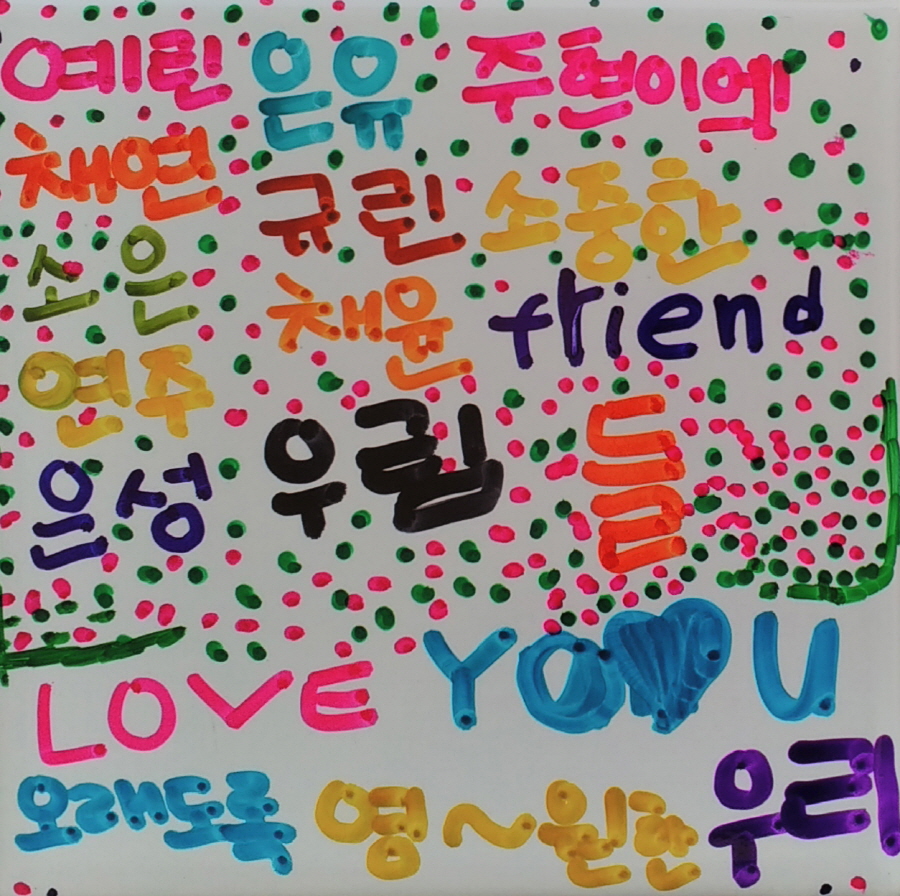 예린 은유 주현이에
채연 규린 소중한
소은 채윤 friend
연주 우린 들
은성
LOVE YOU
오래도록 영~원한 우리